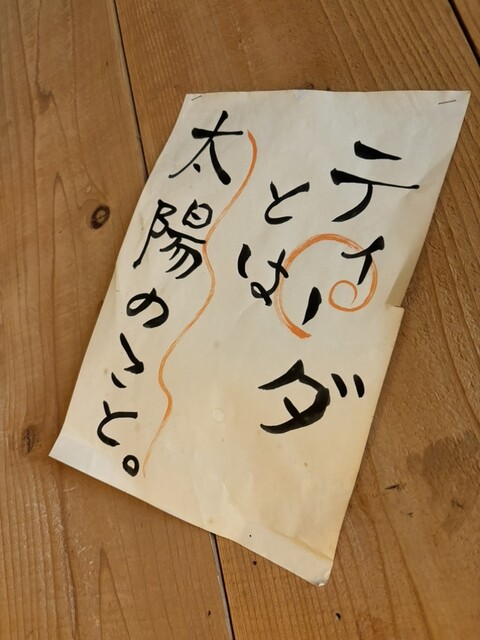 ティーダ
とは
太陽のこと。